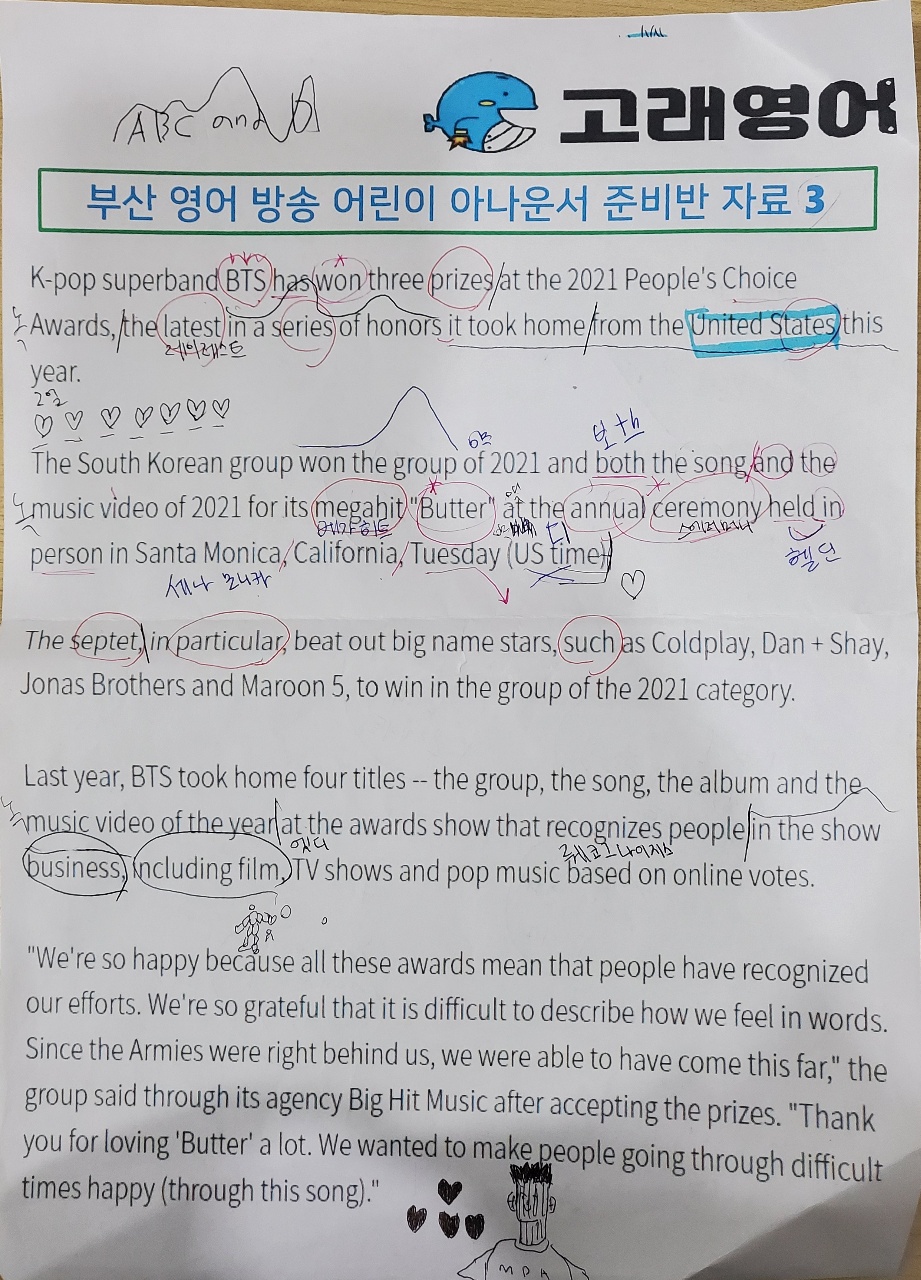 ABC and
고래영어
부산 영어 방송 어린이 아나운서 준비반 자료 3
K-pop superband BTS has won three prizes at the 2021 People's Choice
Awards, the latest in a series of honors it took home from the United States this
레이레스트
year.
2일
6분
보+th
The South Korean group won the group of 2021 and both the song and the
music video of 2021 for its megahit "Butter" at the annual ceremony held in
메가히트
세러머니
헬딘
person in Santa Monica, California, Tuesday (US time)
세나 모니카
The septet, in particular, beat out big name stars, such as Coldplay, Dan + Shay,
Jonas Brothers and Maroon 5, to win in the group of the 2021 category.
Last year, BTS took home four titles -- the group, the song, the album and the
music video of the year at the awards show that recognizes people in the show
레코그나이지스
business, including film, TV shows and pop music based on online votes.
"We're so happy because all these awards mean that people have recognized
our efforts. We're so grateful that it is difficult to describe how we feel in words.
Since the Armies were right behind us, we were able to have come this far," the
group said through its agency Big Hit Music after accepting the prizes. "Thank
you for loving 'Butter' a lot. We wanted to make people going through difficult
times happy (through this song)."